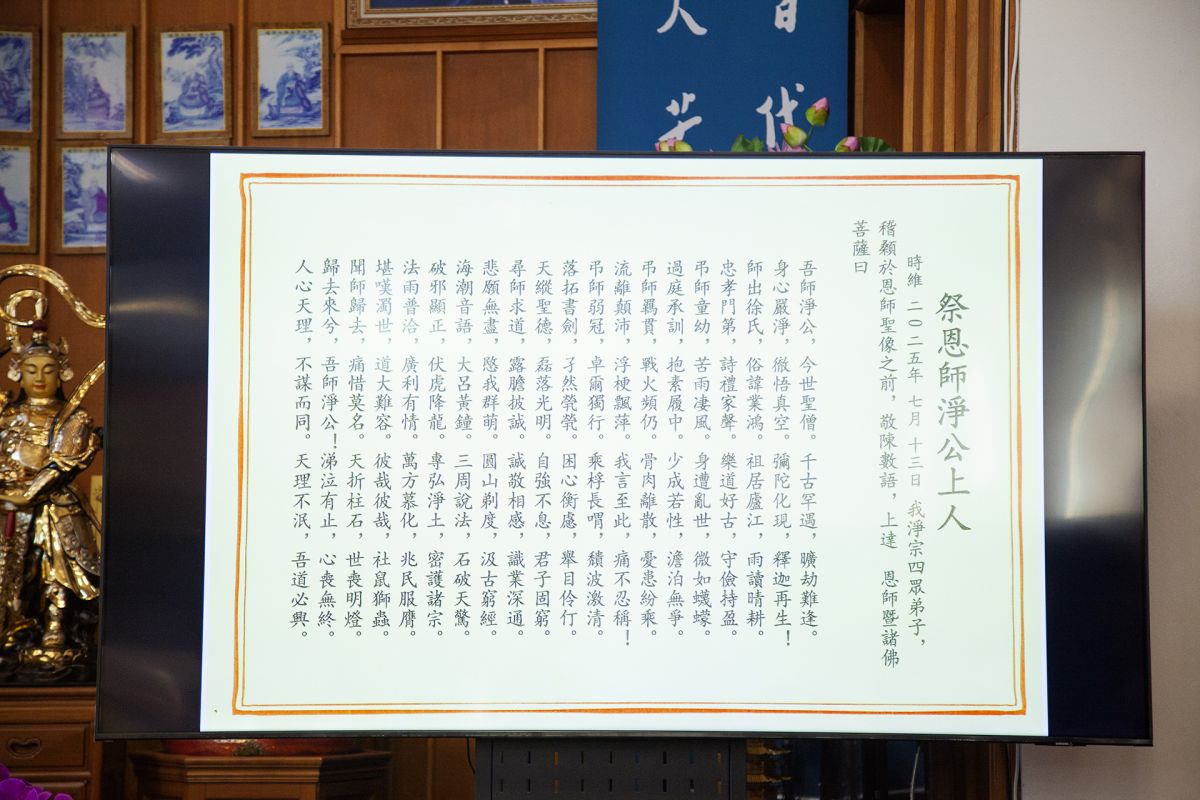 代
人若
祭恩師淨公上人
時維 二〇二五年 七月 十三日 我淨宗四眾弟子，
稽顙於恩師聖像之前，敬陳數語，上達 恩師暨諸佛
菩薩曰
吾師淨公，今世聖僧。千古罕遇，曠劫難逢。
身心嚴淨，徹悟真空。彌陀化現，釋迦再生！
師出徐氏，俗諱業鴻。祖居廬江，雨讀晴耕。
忠孝門第，詩禮家聲。樂道好古，守儉持盈。
弔師童幼，苦雨凄風。身遭亂世，微如蠛蠓。
過庭承訓，抱素履中。少成若性，澹泊無爭。
弔師羈貫，戰火頻仍。骨肉離散，憂患紛乘。
流離顛沛，浮梗飄萍。我言至此，痛不忍稱！
弔師弱冠，卓爾獨行。乘桴長喟，積波激清。
落拓書劍，孑然煢煢。困心衡慮，舉目伶仃。
天縱聖德，磊落光明。自強不息，君子固窮。
尋師求道，露膽披誠。誠敬相感，識業深通。
悲願無盡，愍我群萌。圓山剃度，汲古窮經。
海潮音語，大呂黃鐘。三周說法，石破天驚。
破邪顯正，伏虎降龍。專弘淨土，密護諸宗。
法雨普洽，廣利有情。萬方慕化，兆民服膺。
堪嘆濁世，道大難容。彼哉彼哉，社鼠獅蟲。
聞師歸去，痛惜莫名。天折柱石，世喪明燈。
歸去來兮，吾師淨公！涕泣有止，心喪無終。
人心天理，不謀而同。天理不泯，吾道必興。